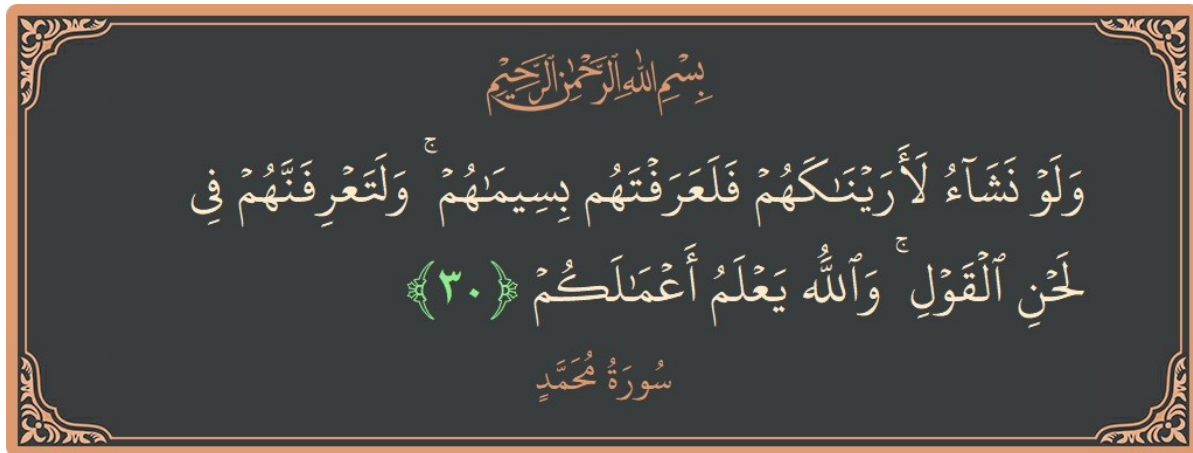 بِسْمِ ٱللَّهِ ٱلرَّحْمَٰنِ ٱلرَّحِيمِ
وَلَوْ نَشَآءُ لَأَرَيْنَـٰكَهُمْ فَلَعَرَفْتَهُم بِسِيمَـٰهُمْ ۚ وَلَتَعْرِفَنَّهُمْ فِى
لَحْنِ ٱلْقَوْلِ ۚ وَٱللَّهُ يَعْلَمُ أَعْمَـٰلَكُمْ ﴿٣٠﴾
سُورَةُ مُحَمَّدٍ